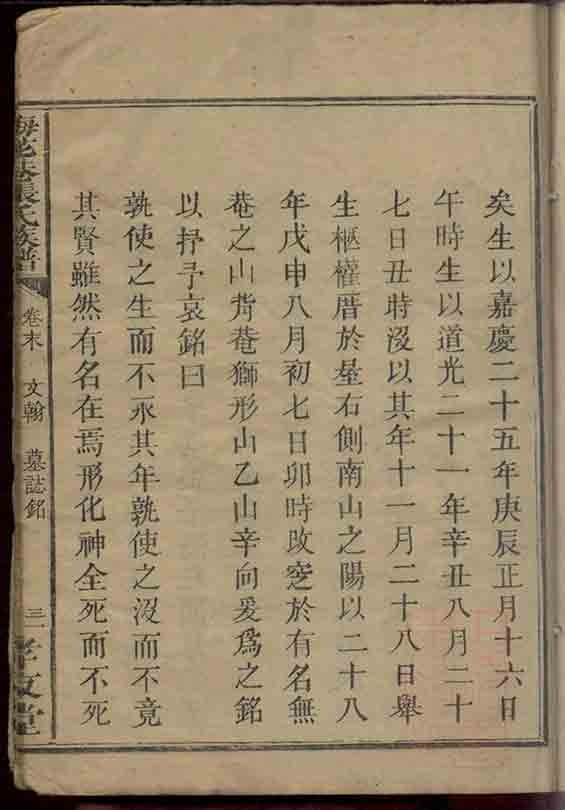 矣生以嘉慶二十五年庚辰正月十六日
午時生以道光二十一年辛丑八月二十
七日丑時沒以其年十一月二十八日舉
生柩權厝於屋右側南山之陽以二十八
年戊申八月初七日卯時改窆於有名無
菴之山背菴獅形山乙山辛向爰為之銘
以抒予哀銘曰
孰使之生而不永其年孰使之沒而不竟
其賢雖然有名在焉形化神全死而不死
張氏族譜
卷末 文翰 墓誌銘
三
孝友堂